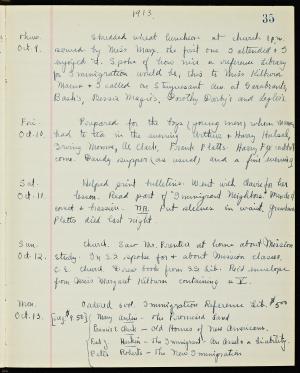 1913
35
Thurs. Shredded wheat luncheon at church 1 p.m.
Oct. 9. by Miss Mary. The first one I attended & I
enjoyed it. Spoke of how nice a reference library
for Immigration would be, this to Miss Kilborn
+ I called on Stuyvesant Ave. at
Bash's, Bessie Dorothy Darby's and
Fri. Prepared for the boys (young men) whom
Oct. 10. had to tea in the evening. Arthur + Harry
Irving Al. Clark, Frank Platts. Harry
come. Dandy supper (as usual) and a fine evening
Sat. Helped print bulletins. Went with for her
Oct. 11. lesson. Read part of "Immigrant Neighbors."
Put sleeves in waist, Grandma
Platts died last night.
Sun. Church. Saw Mr. at home about Mission
Oct. 12. Study. In S.S. spoke for + about Mission classes.
C.E. Church. Drew book from S.S. Lib. Rec'd envelope
from Margaret Kilborn containing a V.
Mon. Ordered 5 vol. Immigration Reference Lib. $5.00
Oct. 13. Mary Antin - The Promised Land
Clark - Old Homes of New Americans.
- The Immigrant - An Asset or a Liability.
Peter Roberts - The New Immigration